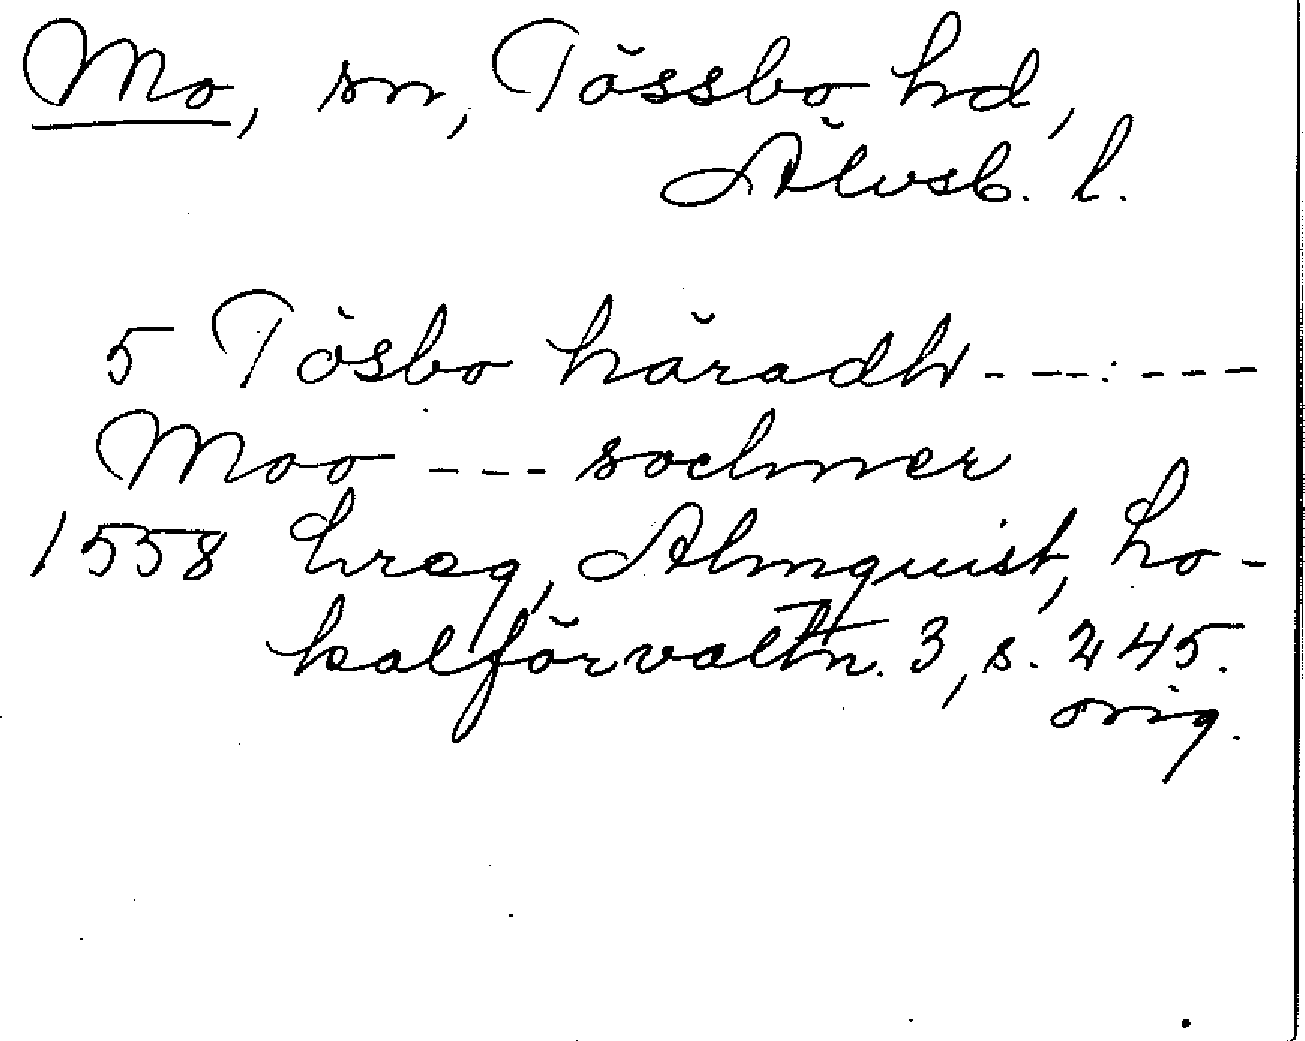 Mo, sn, Tössbo hd,
Älvsb. l.
5 Tösbo häradh - - - - - -
Moo - - - sochner
1558 hreg, Almquist, Lo-
kalförvaltn. 3, s. 245.
orig.